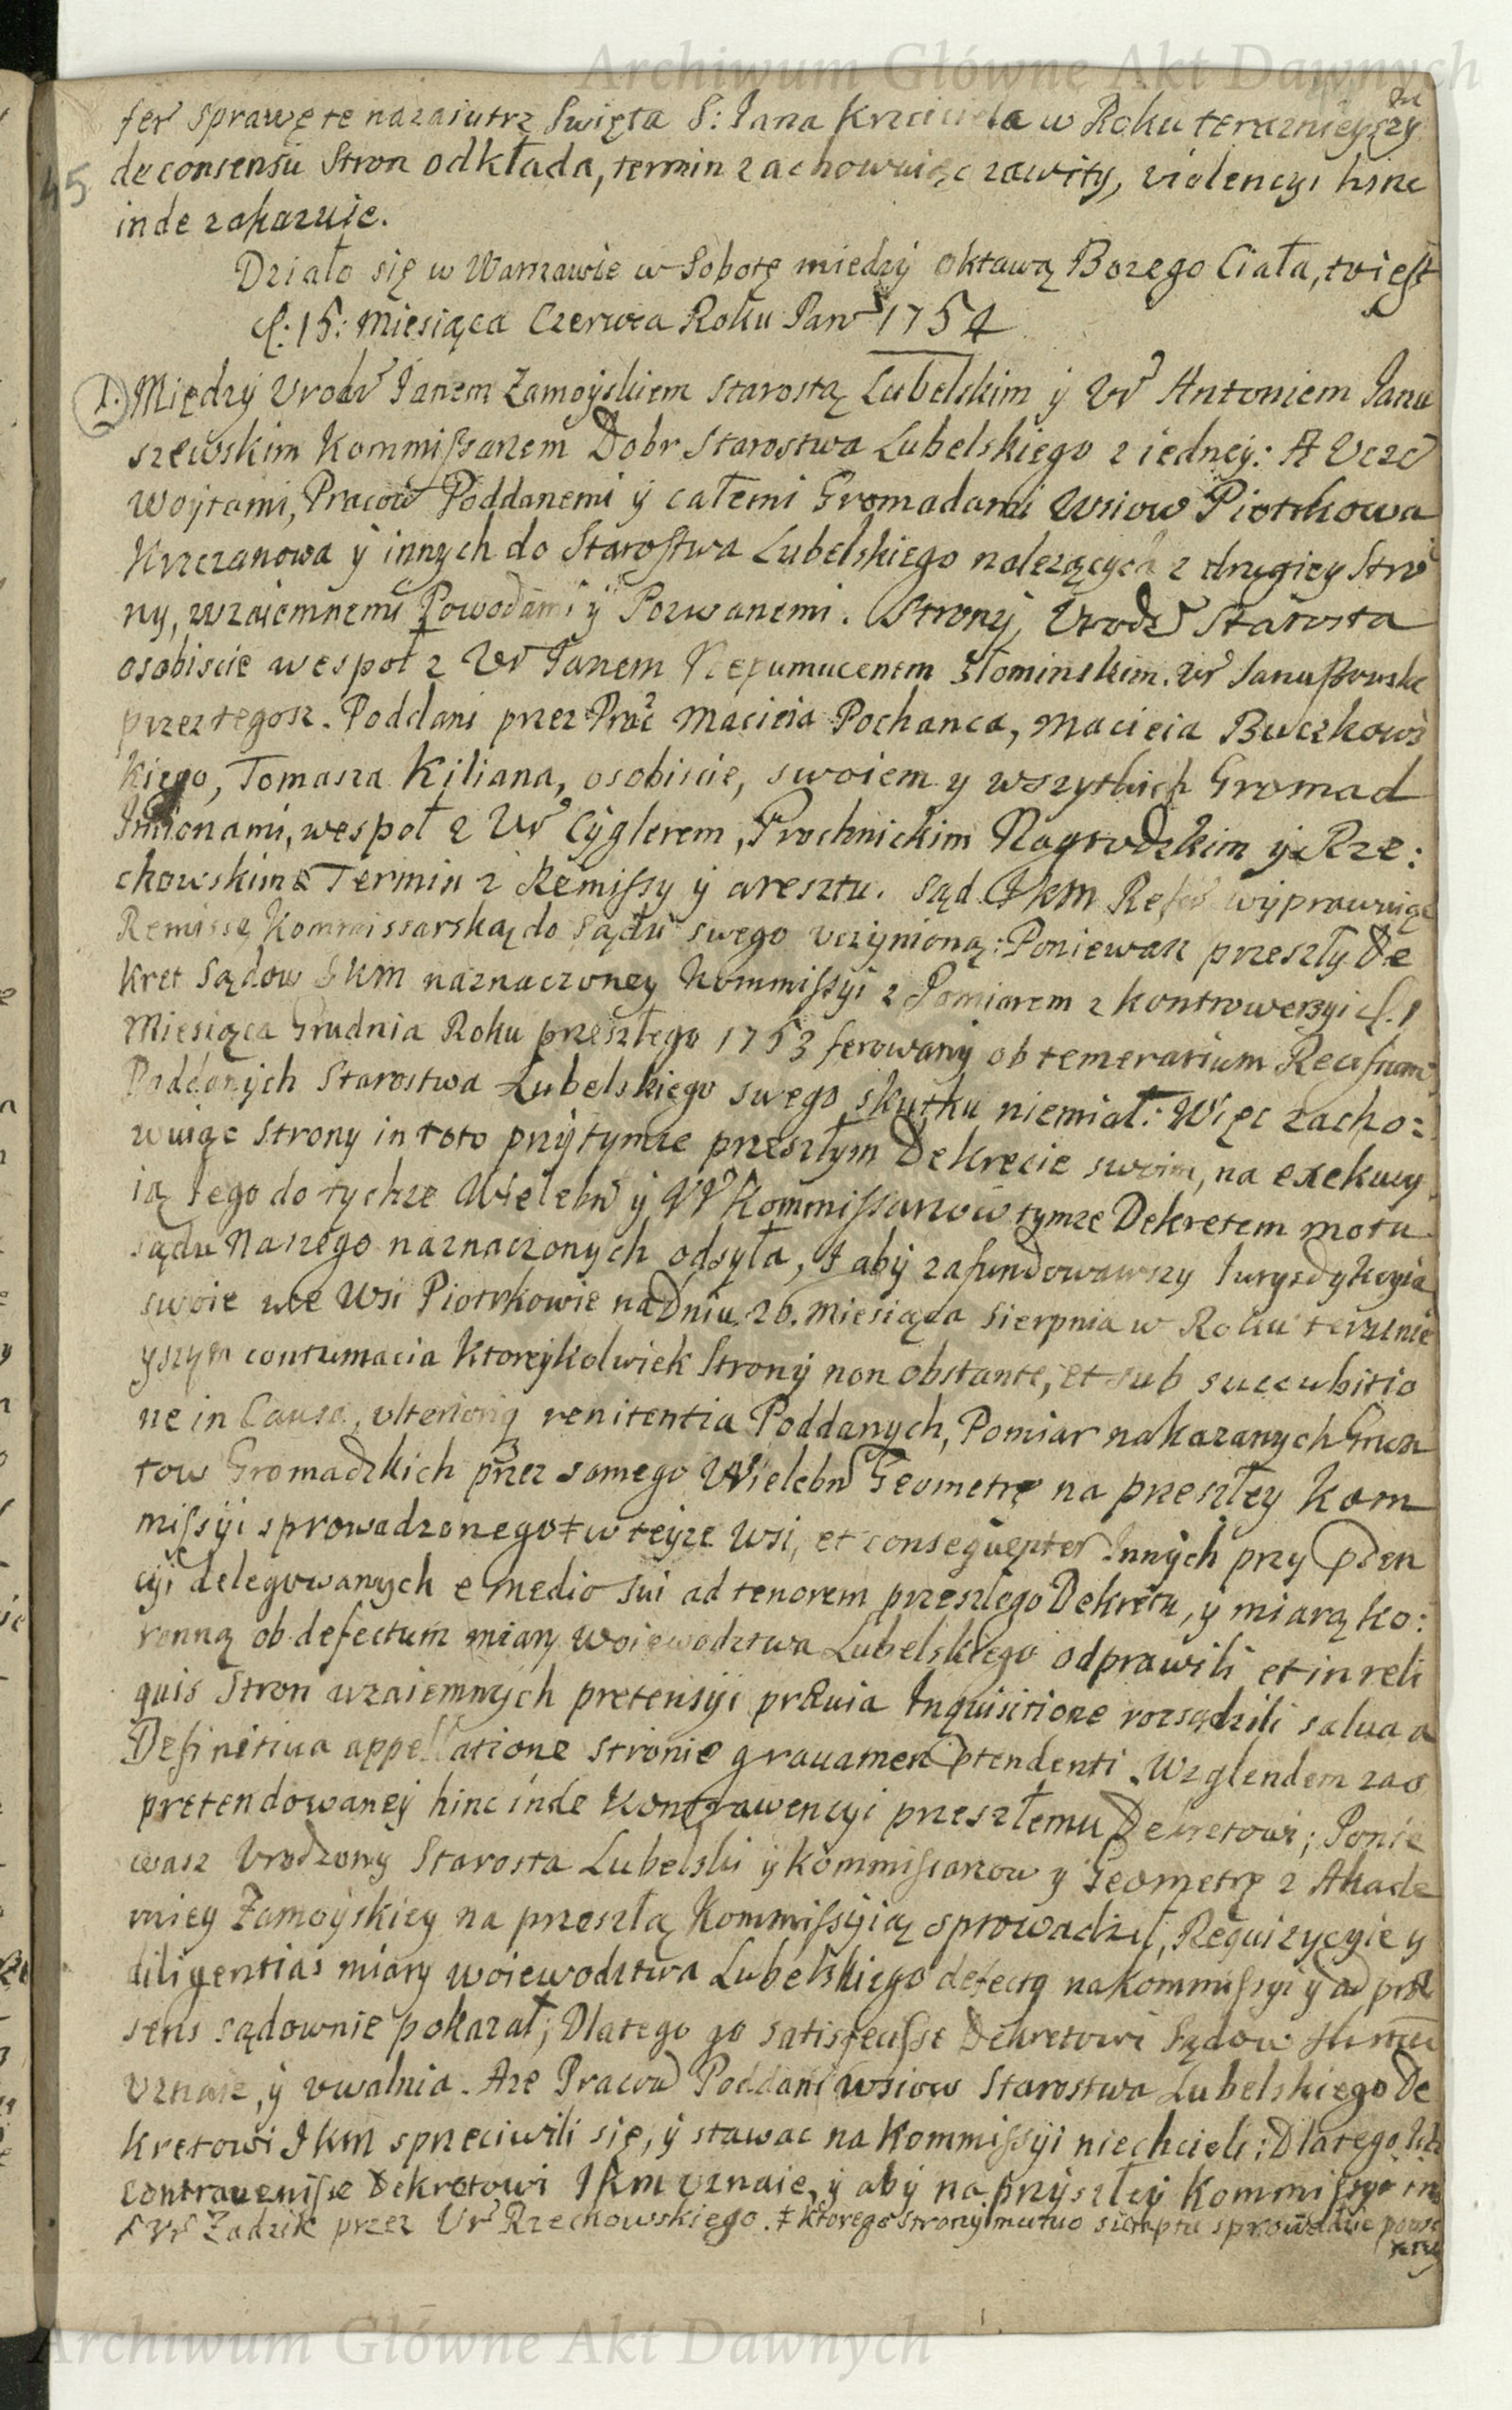 Archiwum Główne Akt Dawnych
45
fer sprawę te nazaiutrz Swięta S: Jana Krzciciela w Roku teraznieyszy
de consensu Stron odkłada, termin zachowuiąc zawity, violencyi hinc
inde zakazuie.
Działo się w Warszawie w Sobotę między oktawą Bozego Ciała, to iest
d: 15: Miesiąca Czerwca Roku Pan 1754
1. Między Urodz Janem Zamoyskiem Starostą Lubelskim y Ur Antoniem Janu
szewskim Kommissarzem Dobr Starostwa Lubelskiego z iedney: A Uczc
Woytami, Pracow Poddanemi y całemi Gromadami Wsiow Piotrkowa
Krzczanowa y innych do Starostwa Lubelskiego nalezących z drugiey Stro
ny, wzaiemnemi Powodami y Pozwanemi. Strony, Urodz Starosta
osobiscie wespoł z Ur Janem Nepumucenem Słominskim. Ur Januszowski
przez tegosz. Poddani przez Prac Macieia Pochanca, Macieia Buczkows
kiego, Tomasza Kiliana, osobiscie, swoiem y wszytkich Gromad
Imionami, wespoł z Ur Cyglerem, Prochnickim Nagrodzkim y Rze:
chowskim Termin z Remissy y aresztu. Sąd JKM Refer wyprawuiąc
Remissę Kommissarską do Sądu swego uczynioną: Poniewasz przeszły De
kret Sądow JKM naznaczoney Kommissyi z Pomiarem z kontrowersyi d. 1
Miesiąca Grudnia Roku przeszłego 1753 ferowany ob temerarium Recessum
Poddanych Starostwa Lubelskiego swego skutku niemiał: Więc zacho:
wuiąc Strony in toto przy tymze przeszłym Dekrecie swoim, na exekucy
ią tego do tychze Wielebn y UU Kommissarzow tymze Dekretem motu
Sądu Naszego naznaczonych odsyła, I aby zafundowawszy Jurysdykcyią
swoie we Wsi Piotrkowie na Dniu 26. Miesiąca Sierpnia w Roku teraznie
yszym contumacia ktoreykolwiek Strony non obstante, et sub succubitio
ne in Causa, ulteriorią renitentia Poddanych, Pomiar nakazanych Grun
tow Gromadzkich przez samego Wielebn Geometrę na przeszłey Kom
missyi sprowadzonego ‡ w teyze Wsi, et consequenter Innych przy pden
cyi delegowanych e medio sui ad tenorem przeszłego Dekretu, y miarą ko:
ronną ob defectum miary Woiewodztwa Lubelskiego odprawili et in reli
quis Stron wzaiemnych pretensyi prævia Inquisitione rozsądzili salva a
Definitiva appellatione stronie gravamen ptendenti. Wzglendem zas
pretendowaney hinc inde Kontrawencyi przeszłemu Dekretowi; Ponie
wasz Urodzony Starosta Lubelski y Kommissarzow y Geometrę z Akade
miey Zamoyskiey na przeszłą Kommissyią sprowadził, Requizycyie y
diligentias miary Woiewodztwa Lubelskiego defectą na Kommissyi y ad præ
sens sądownie pokazał; Dlatego go satisfecisse Dekretowi Sądow
uznaie, y uwalnia. Aze Pracow Poddani Wsiow Starostwa Lubelskiego De
kretowi JKM sprzeciwili się, y stawac na Kommissyi niechcieli; Dlatego Ich
contravenisse Dekretowi JKM uznaie, y aby na przyszłey Kommissyi in
Ur Zadzik przez Ur Rzechowskiego. ‡ ktorego Strony mutuo sumptu sprowadzic powi
nny
Archiwum Główne Akt Dawnych